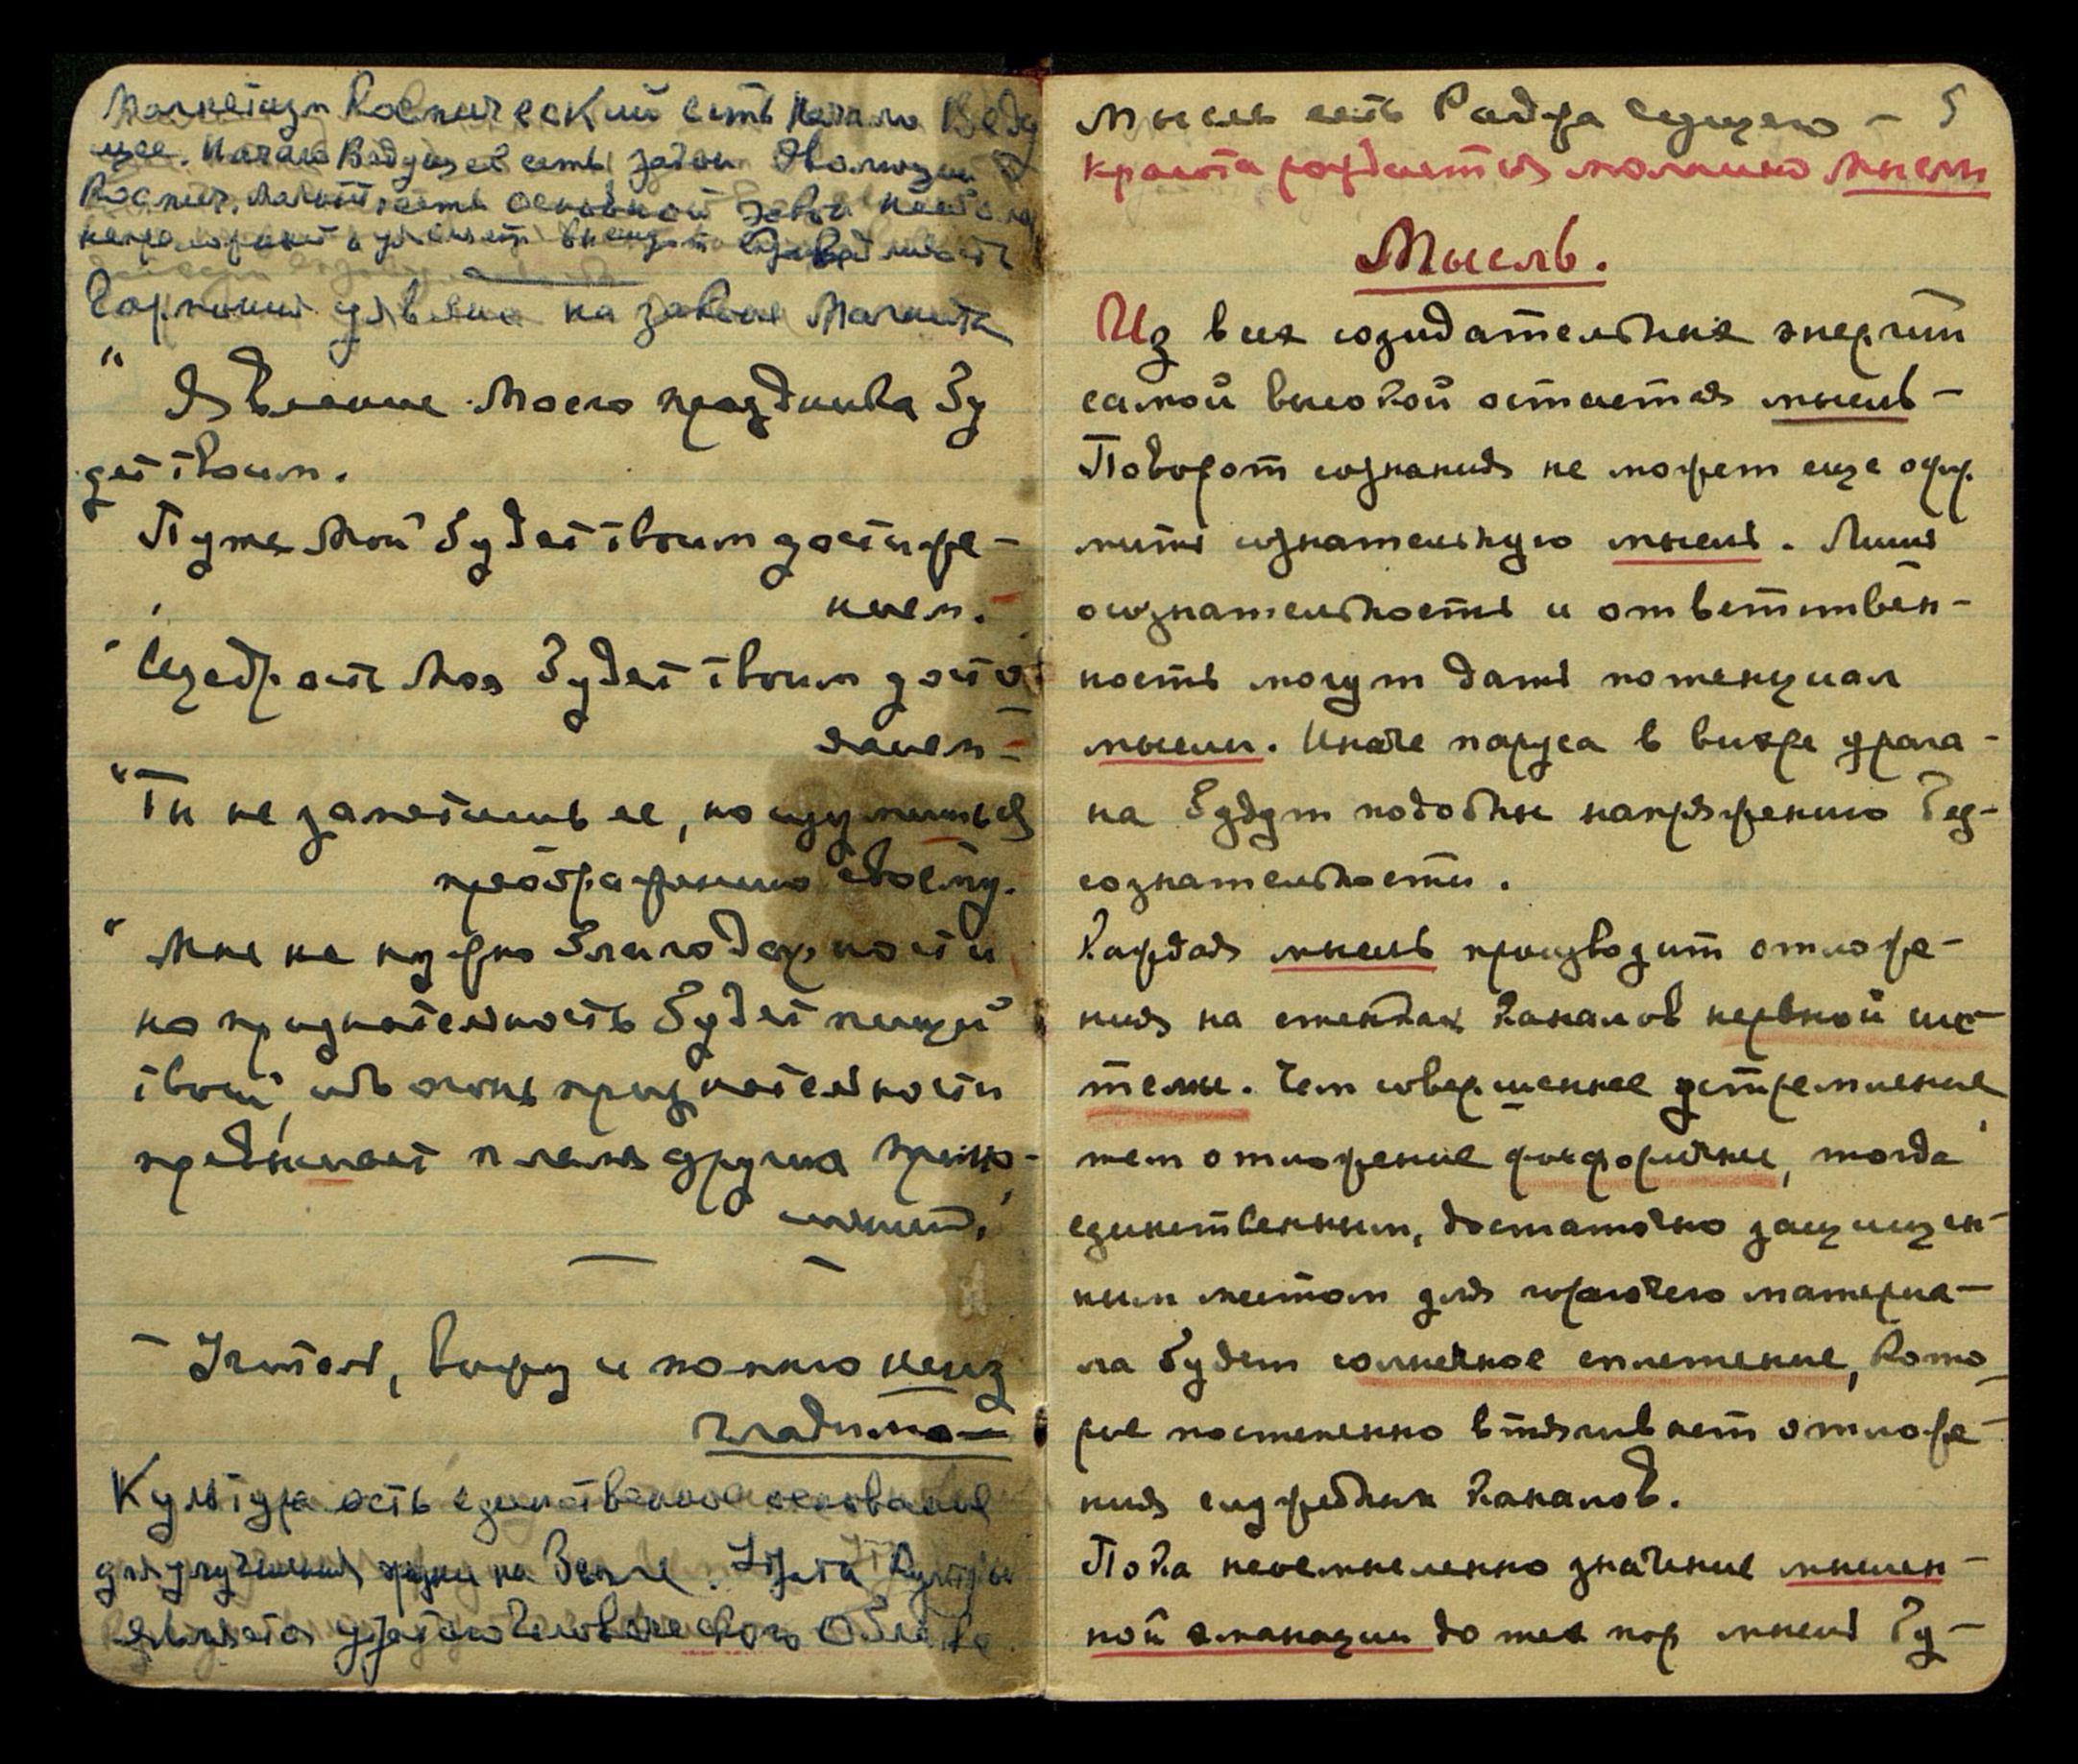 Магнетизм Космический есть Начало Веду
щее. Начало Ведущее есть закон Эволюции
Космич. Магнит есть основной закон
Гармония явлена на законе Магнита
" Явление Моего праздника бу
дет твоим.
Путь Мой будет твоим достиже-
нием.
" Щедрость Моя будет твоим досто
янием –
"Ты не заметишь ее, но изумишься
преображению своему.
" Мне не нужно благодарности
но признательность будет пищей
твоей, ибо огонь признательности
пламя других
– Учитель, вижу и помню неиз
гладимо –
Культура есть единственное основание
для улучшения жизни на Земле. Утрата Культуры
является утратою Человеческого Облика
Мысль есть Раджа Сущего – 5
красота рождается молнию мысли
Мысль.
Из всех созидательных энергий
самой высокой остается мысль –
Поворот сознания не может еще офор
мить сознательную мысль. Лишь
осознательность и ответствен-
ность могут дать потенциал
мысли. Иначе паруса в вихре урага-
на будут подобны напряжению без-
сознательности.
Каждая мысль производит отложе-
ния на стенках каналов нервной сис-
темы. Чем совершеннее устремление,
тем отложение фосфоричнее, тогда
единственным, достаточно защищен-
ным местом для горючего материа-
ла будет солнечное сплетение, кото-
рое постепенно втягивает отложе-
ния снаружных каналов.
Пока неосмысленно значение мыслен-
ной эманации до тех пор мысль бу-